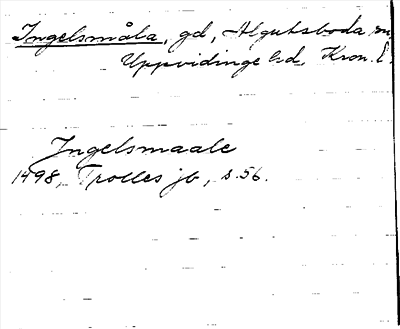 Ingelsmåla, gd, Algutsboda sn,
Uppvidinge hd, Kron. l.
Ingelsmaale
1498, Trolles jb, s. 56.